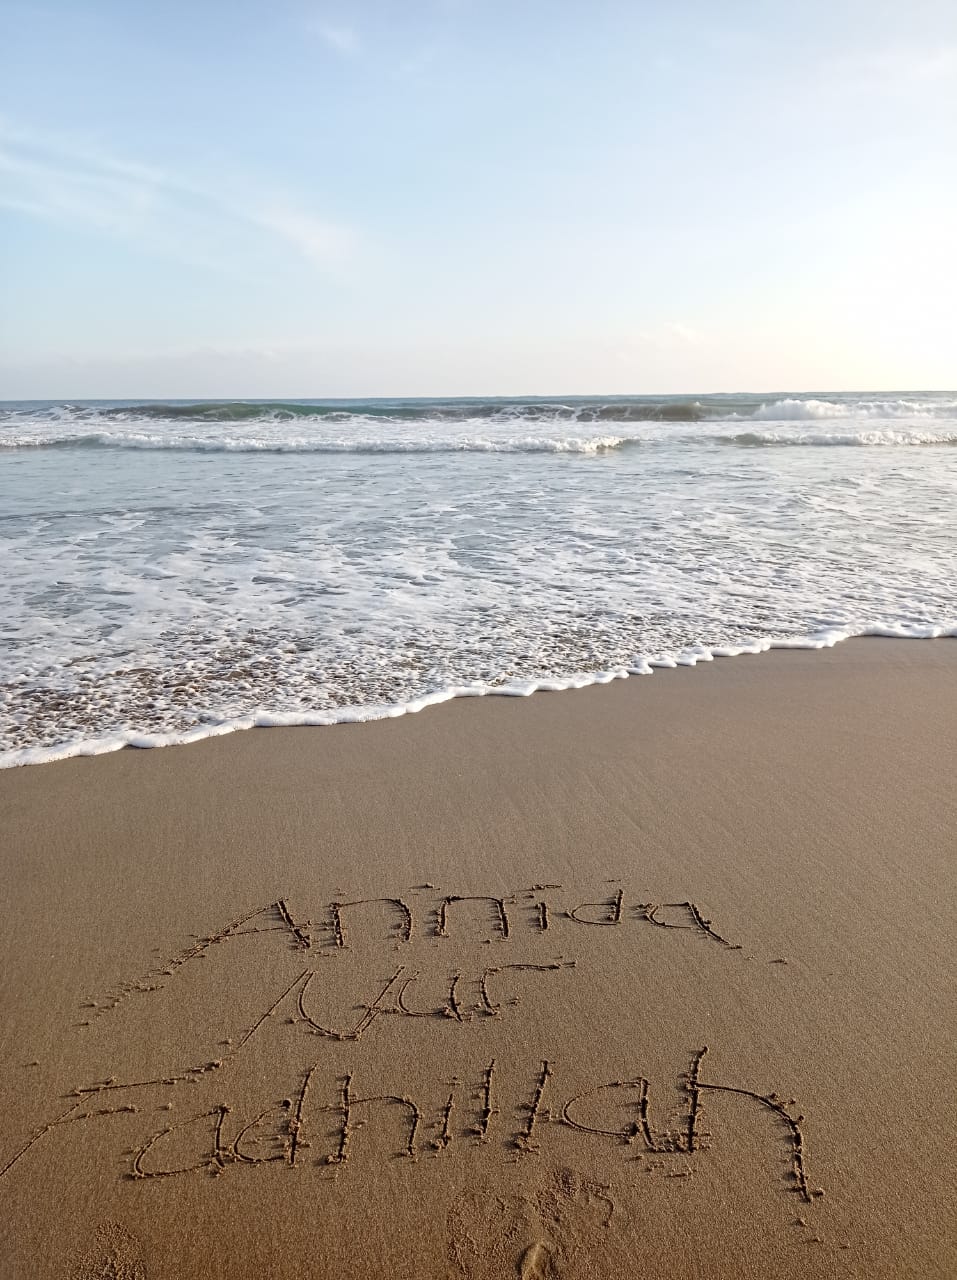 Annida
Nur
Fadhillah